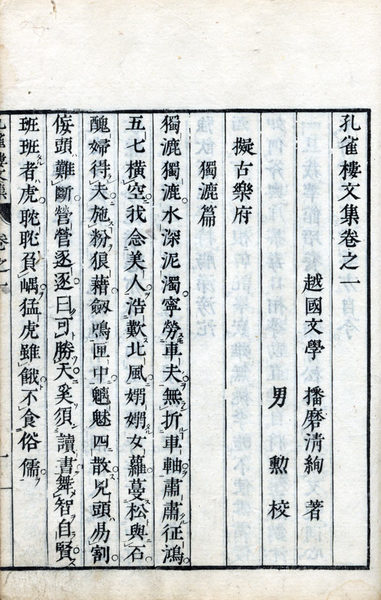 孔雀樓文集卷之一
越國文學 播磨清絢 著
男 勲 校
擬古樂府
獨漉篇
獨漉獨漉水深泥濁寧勞車夫無折車軸肅肅征鴻
五七橫空我念美人浩歎北風嫋嫋女蘿蔓松與石
醜婦得夫施粉狼藉劔鳴匣中魑魅四散兕頭易割
侫頭難斷營營逐逐曰可勝天奚須讀書舞智自賢
班班者虎耽耽負嵎猛虎雖餓不食俗儒
孔雀樓文集 卷之一 一